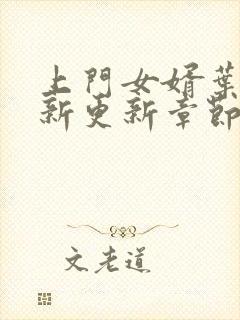 上門女婿葉
新更新章節
文老道